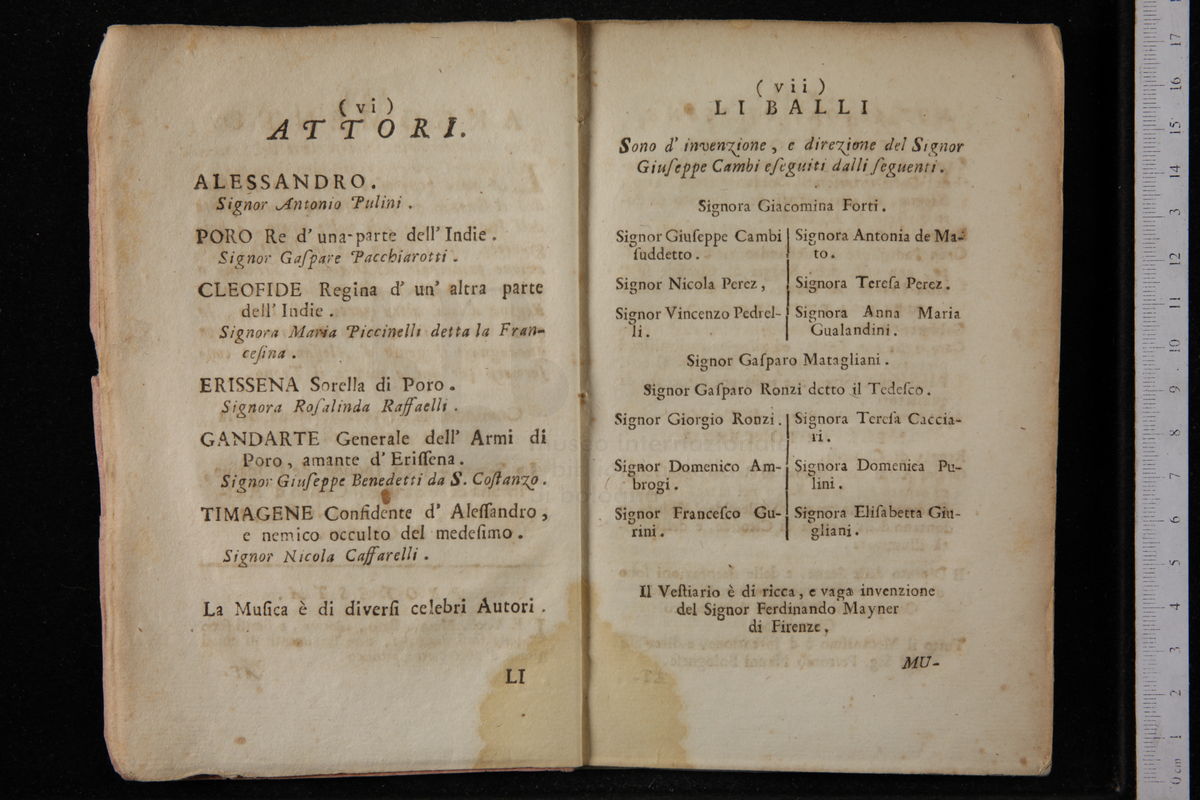 ( vi )
ATTORI.
ALESSANDRO.
Signor Antonio Pulini .
PORO Re d' una-parte dell' Indie .
Signor Gaſpare Pacchiarotti .
CLEOFIDE Regina d' un' altra parte
dell' Indie .
Signora Maria Piccinelli detta la Fran-
ceſina .
ERISSENA Sorella di Poro .
Signora Roſalinda Raffaelli .
GANDARTE Generale dell' Armi di
Poro , amante d' Eriſſena .
Signor Giuſeppe Benedetti da S. Coſtanzo .
TIMAGENE Confidente d' Aleſſandro ,
e nemico occulto del medeſimo .
Signor Nicola Caffarelli .
La Muſica è di diverſi celebri Autori .
LI
( vii )
LI BALLI
Sono d' invenzione , e direzione del Signor
Giuſeppe Cambi eſeguiti dalli ſeguenti .
Signora Giacomina Forti .
Signor Giuſeppe Cambi
ſuddetto .
Signora Antonia de Ma-
to .
Signor Nicola Perez ,
Signora Tereſa Perez .
Signor Vincenzo Pedrel-
li .
Signora Anna Maria
Gualandini .
Signor Gaſparo Matagliani .
Signor Gaſparo Ronzi detto il Tedeſco .
Signor Giorgio Ronzi .
Signora Tereſa Caccia-
ri .
Signor Domenico Am-
brogi .
Signora Domenica Pu-
lini .
Signor Franceſco Gu-
rini .
Signora Eliſabetta Giu-
gliani .
Il Veſtiario è di ricca , e vaga invenzione
del Signor Ferdinando Mayner
di Firenze ,
MU-
0 cm 1 2 3 4 5 6 7 8 9 10 11 12 13 14 15 16 17